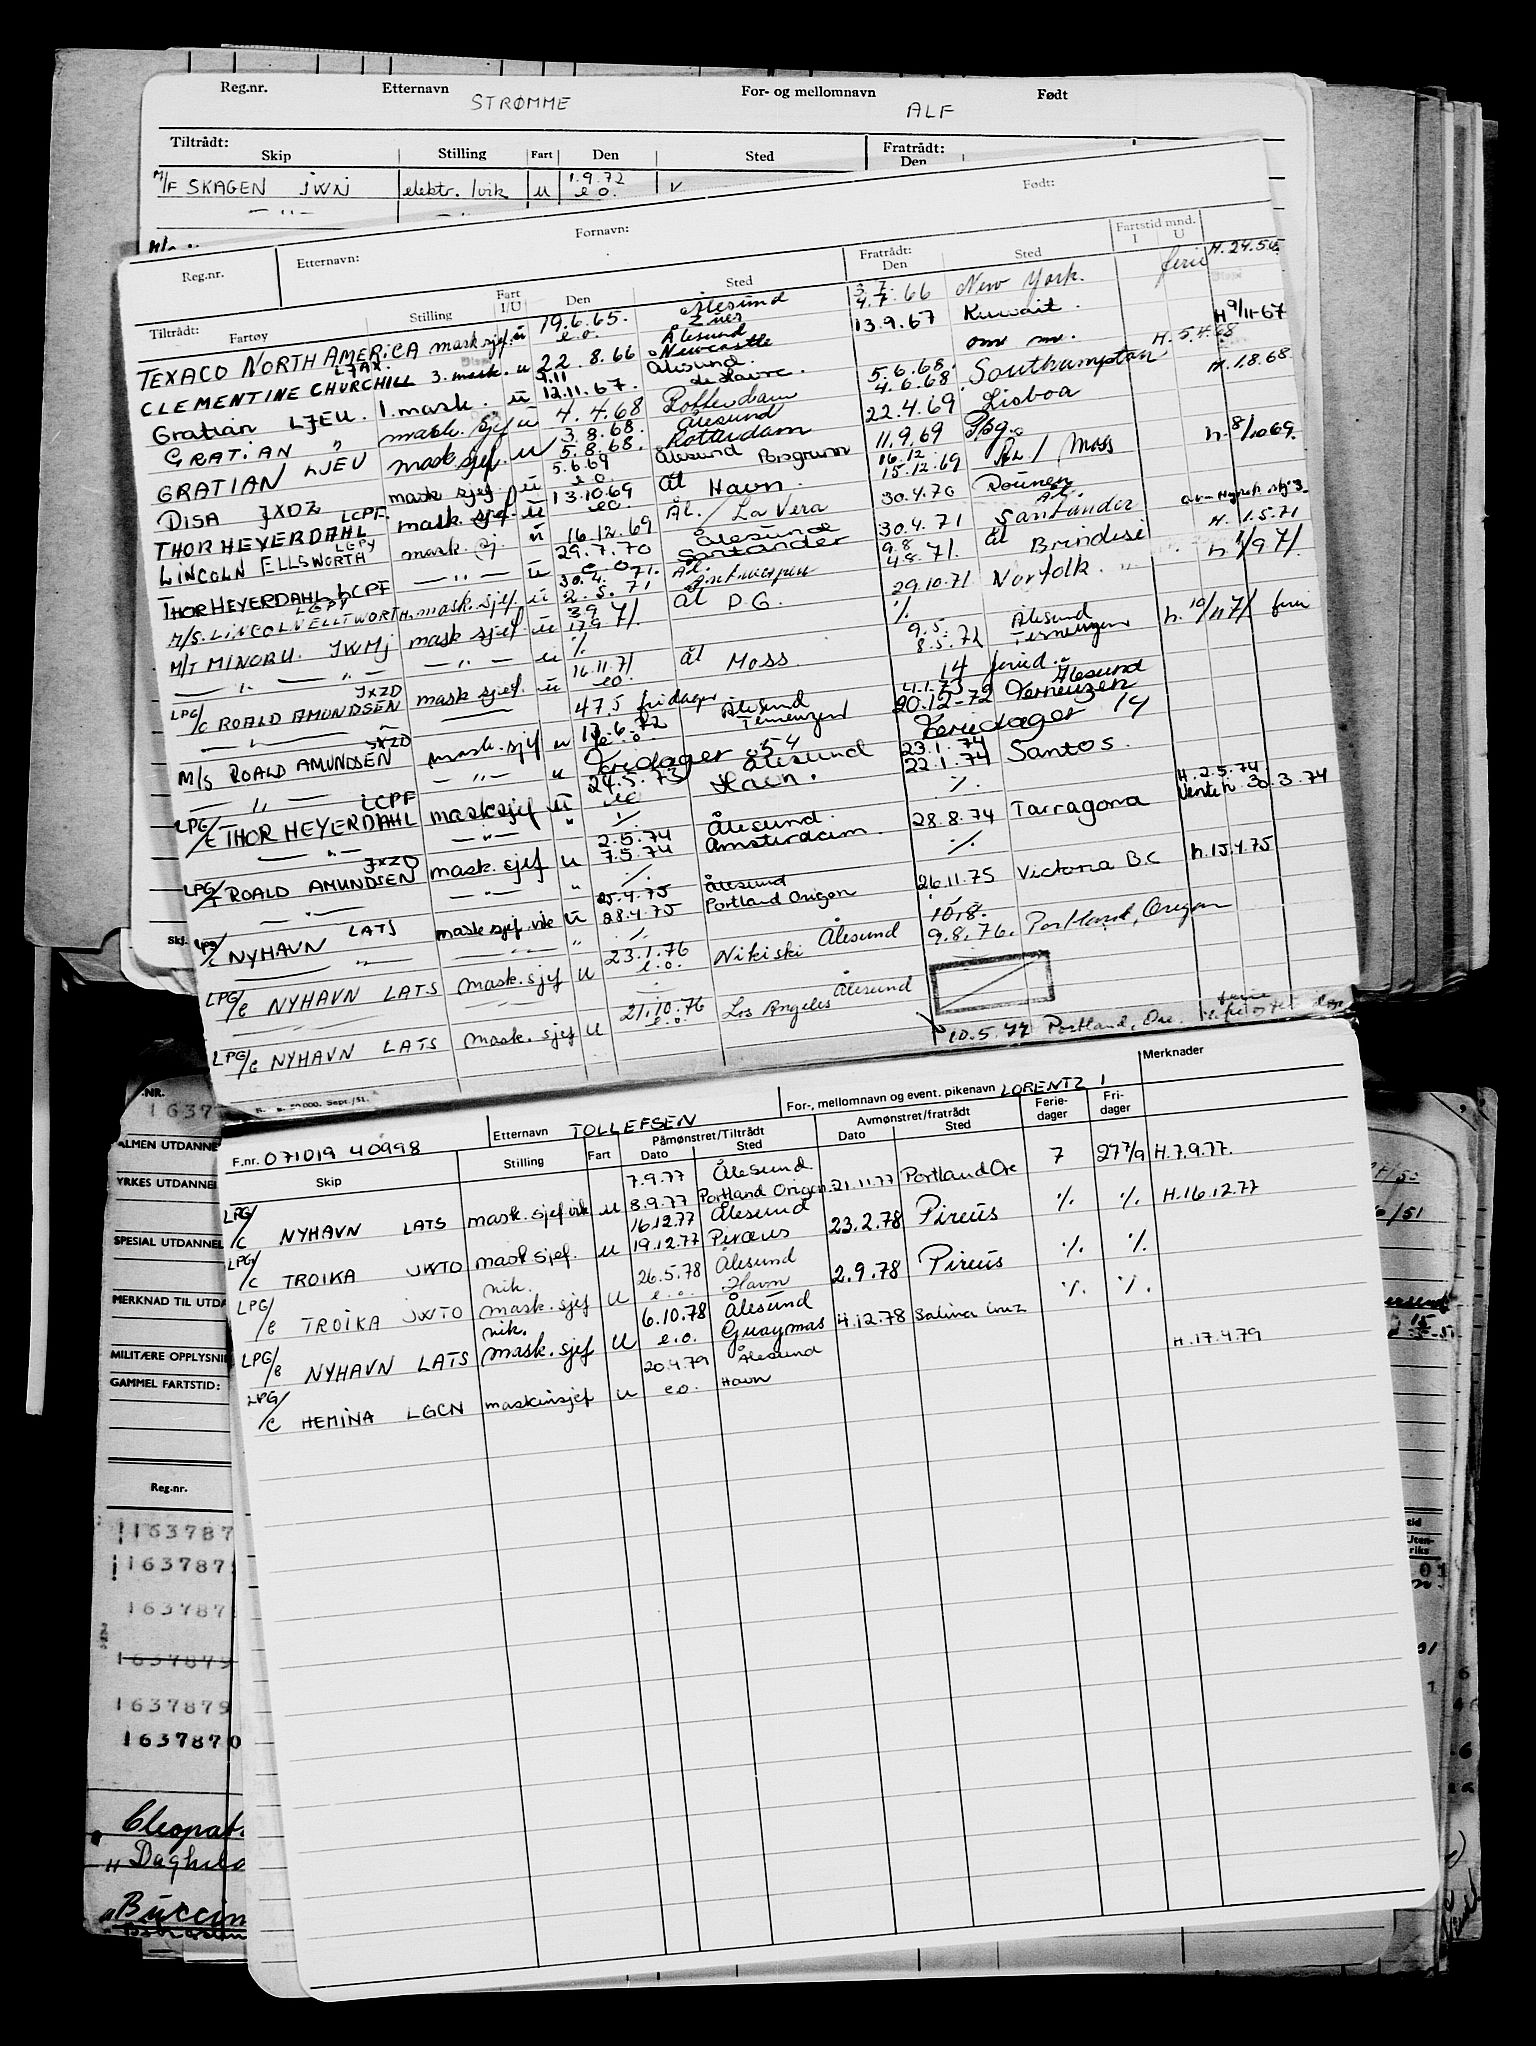 Reg.nr. Etternavn STRØMME For- og mellomnavn ALF Født
Tiltrådt: Fratrådt:
Skip Stilling Fart Den Sted Den
M/F SKAGEN JWNJ elektr. /vik u 1.9.72 e.o.
Reg.nr. Etternavn: Fornavn: Født:
Tiltrådt: Fratrådt: Fartstid mnd.
Fartøy Stilling Fart I/U Den Sted Den Sted I U
TEXACO NORTH AMERICA mask sjef. u 19.6.65. e.o. Ålesund 3.7. 4.7.66 New York. ferie H. 24.5.65
CLEMENTINE CHURCHILL LJAX. 3. mask. u 22.8.66 Ålesund Newcastle 13.9.67 Kuwait. H 9/11-67
Gratian LJEU. 1. mask. u 9.11 12.11.67. Ålesund de Havre. H. 5.4.68
GRATIAN " mask. sjef u 4.4.68 Rotterdam 5.6.68. 4.6.68 Southampton H. 1.8.68
GRATIAN LJEU mask sjef. u 3.8.68. 5.8.68. Ålesund Rotterdam 22.4.69 Lisboa
DISA JXDZ mask sjef u 5.6.69 e.o. Ålesund Porsgrunn 11.9.69 Pbg. h. 8/10 69.
THOR HEYERDAHL LCPF. mask sjef u 13.10.69 e.o. Ål Havn. 16.12 15.12.69 Moss
LINCOLN ELLSWORTH LGPY mask. sj. u 16.12.69 Ål. / La Vera 30.4.70 Rounen
— " — u 29.7.70 e.o. Ålesund Santander 30.4.71 Ål. Santander
THOR HEYERDAHL LCPF mask. sjef. u 30.4.71. 2.5.71 Ål. Antwerpen 9.8 4.8.71. Ål Brindisi H. 1.5.71
M/S. LINCOLN ELLTWORTH. LGPY
M/T MINORU. JWMJ mask sjef. u 3.9 17.9 71. Ål P.G. 29.10.71 Norfolk. h. 1/9 71
— " — " — — " — u % %
LPG/C ROALD AMUNDSEN JXZD mask sjef. u 16.11.71 e.o. Ål Moss. 9.5. 8.5.72 Ålesund Terneuzen h. 10/11 71 ferie
— " — 47.5 fridager 14 feried.
M/S ROALD AMUNDSEN JXZD mask. sjef u 13.6.72 e.o. Ålesund Terneuzen 4.1.73 20.12-72 Ålesund Terneuzen
— " — — " — u Fridager 54 Feriedager 14
LPG/C THOR HEYERDAHL LCPF mask sjef u 24.5.73 e.o. Ålesund Havn. 23.1.74 22.1.74 Santos.
— " — — " — " % %
LPG/T ROALD AMUNDSEN JXZD mask. sjef u 2.5.74 7.5.74 Ålesund. Amsterdam. 28.8.74 Tarragona H. 2.5.74 Venteh. 30.3.74
— " — — " — " % %
LPG/C NYHAVN LATS mask sjef. vik u 25.4.75 28.4.75 Ålesund Portland Origon 26.11.75 Victoria B.C h. 15.4.75
— " — — " — " %
LPG/C NYHAVN LATS mask. sjef u 23.1.76 e.o. Nikiski Ålesund 10.8. 9.8.76. Portland, Oregon
LPG/C NYHAVN LATS mask. sjef u 21.10.76 e.o. Los Angeles Ålesund 10.5.77 Portland, Ore. ferie
Sept./51.
F.nr. 071019 40998 Etternavn TOLLEFSEN For-, mellomnavn og event. pikenavn LORENTZ I Merknader
Påmønstret/Tiltrådt Avmønstret/fratrådt Ferie- Fri-
Skip Stilling Fart Dato Sted Dato Sted dager dager
LPG/C NYHAVN LATS mask. sjef vik u 7.9.77 8.9.77 Ålesund. Portland Origon 21.11.77 Portland Ore 7 27 7/9 H. 7.9.77.
LPG/C TROIKA JWTO mask sjef. vik. u 16.12.77 19.12.77 Ålesund Piræus 23.2.78 Pireüs % % H. 16.12.77
LPG/C TROIKA JWTO mask. sjef vik. u 26.5.78 e.o. Ålesund Havn 2.9.78 Pireüs % %
LPG/C NYHAVN LATS mask. sjef u 6.10.78 e.o. Ålesund Guaymas 4.12.78 Salina Cruz % %
LPG/C HEMINA LGCN maskinsjef u 20.4.79 e.o. Ålesund Havn H. 17.4.79
.NR.
1637
ALMEN UTDANNE
YRKES UTDANNEL
SPESIAL UTDANNEL
MERKNAD TIL UTDA
MILITÆRE OPPLYSNI
GAMMEL FARTSTID:
Reg.nr.
163787
1637879
163787
1637879
1637879
1637870
Cleopat
" Daghild
" Buccin